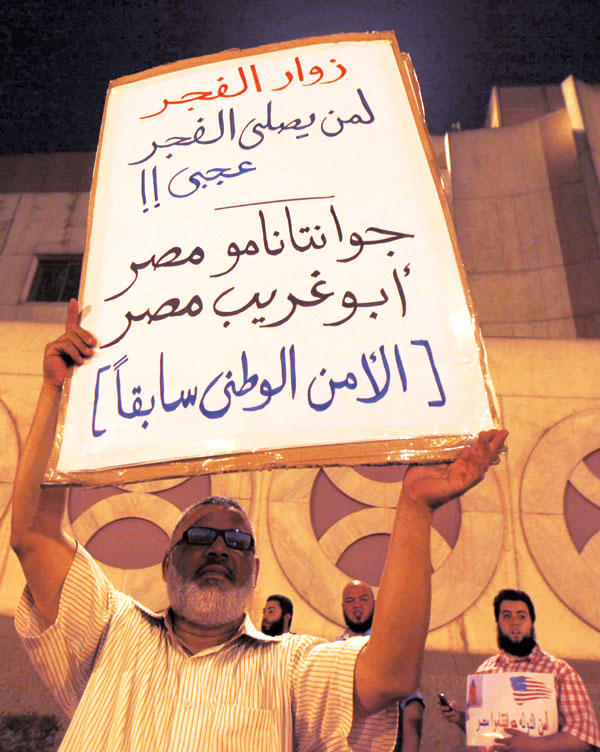 زوار الفجر
لمن يصلى الفجر
عجبى !!
جوانتانامو مصر
أبو غريب مصر
[الأمن الوطنى سابقاً]
أمن الدوله جوانتاناموا مصر